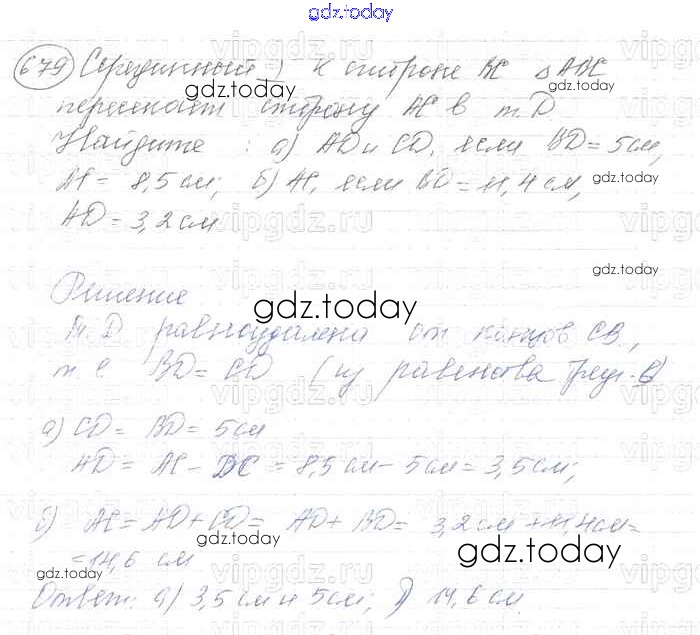 gdz.today
679 Серединный ⊥ к стороне BC △ABC
gdz.today
пересекает сторону AC в т. D
Найдите : а) AD и CD, если BD = 5 см,
AC = 8,5 см; б) AC, если BD = 11,4 см,
gdz.today
AD = 3,2 см
gdz.today
Решение
gdz.today
Т. D равноудалена от концов CB,
т. е. BD = CD (из равенства треуг-в)
а) CD = BD = 5 см
AD = AC - DC = 8,5 см - 5 см = 3,5 см;
б) AC = AD + CD = AD + BD = 3,2 см + 11,4 см =
gdz.today
= 14,6 см
gdz.today
gdz.today
Ответ: а) 3,5 см и 5 см; б) 14,6 см.